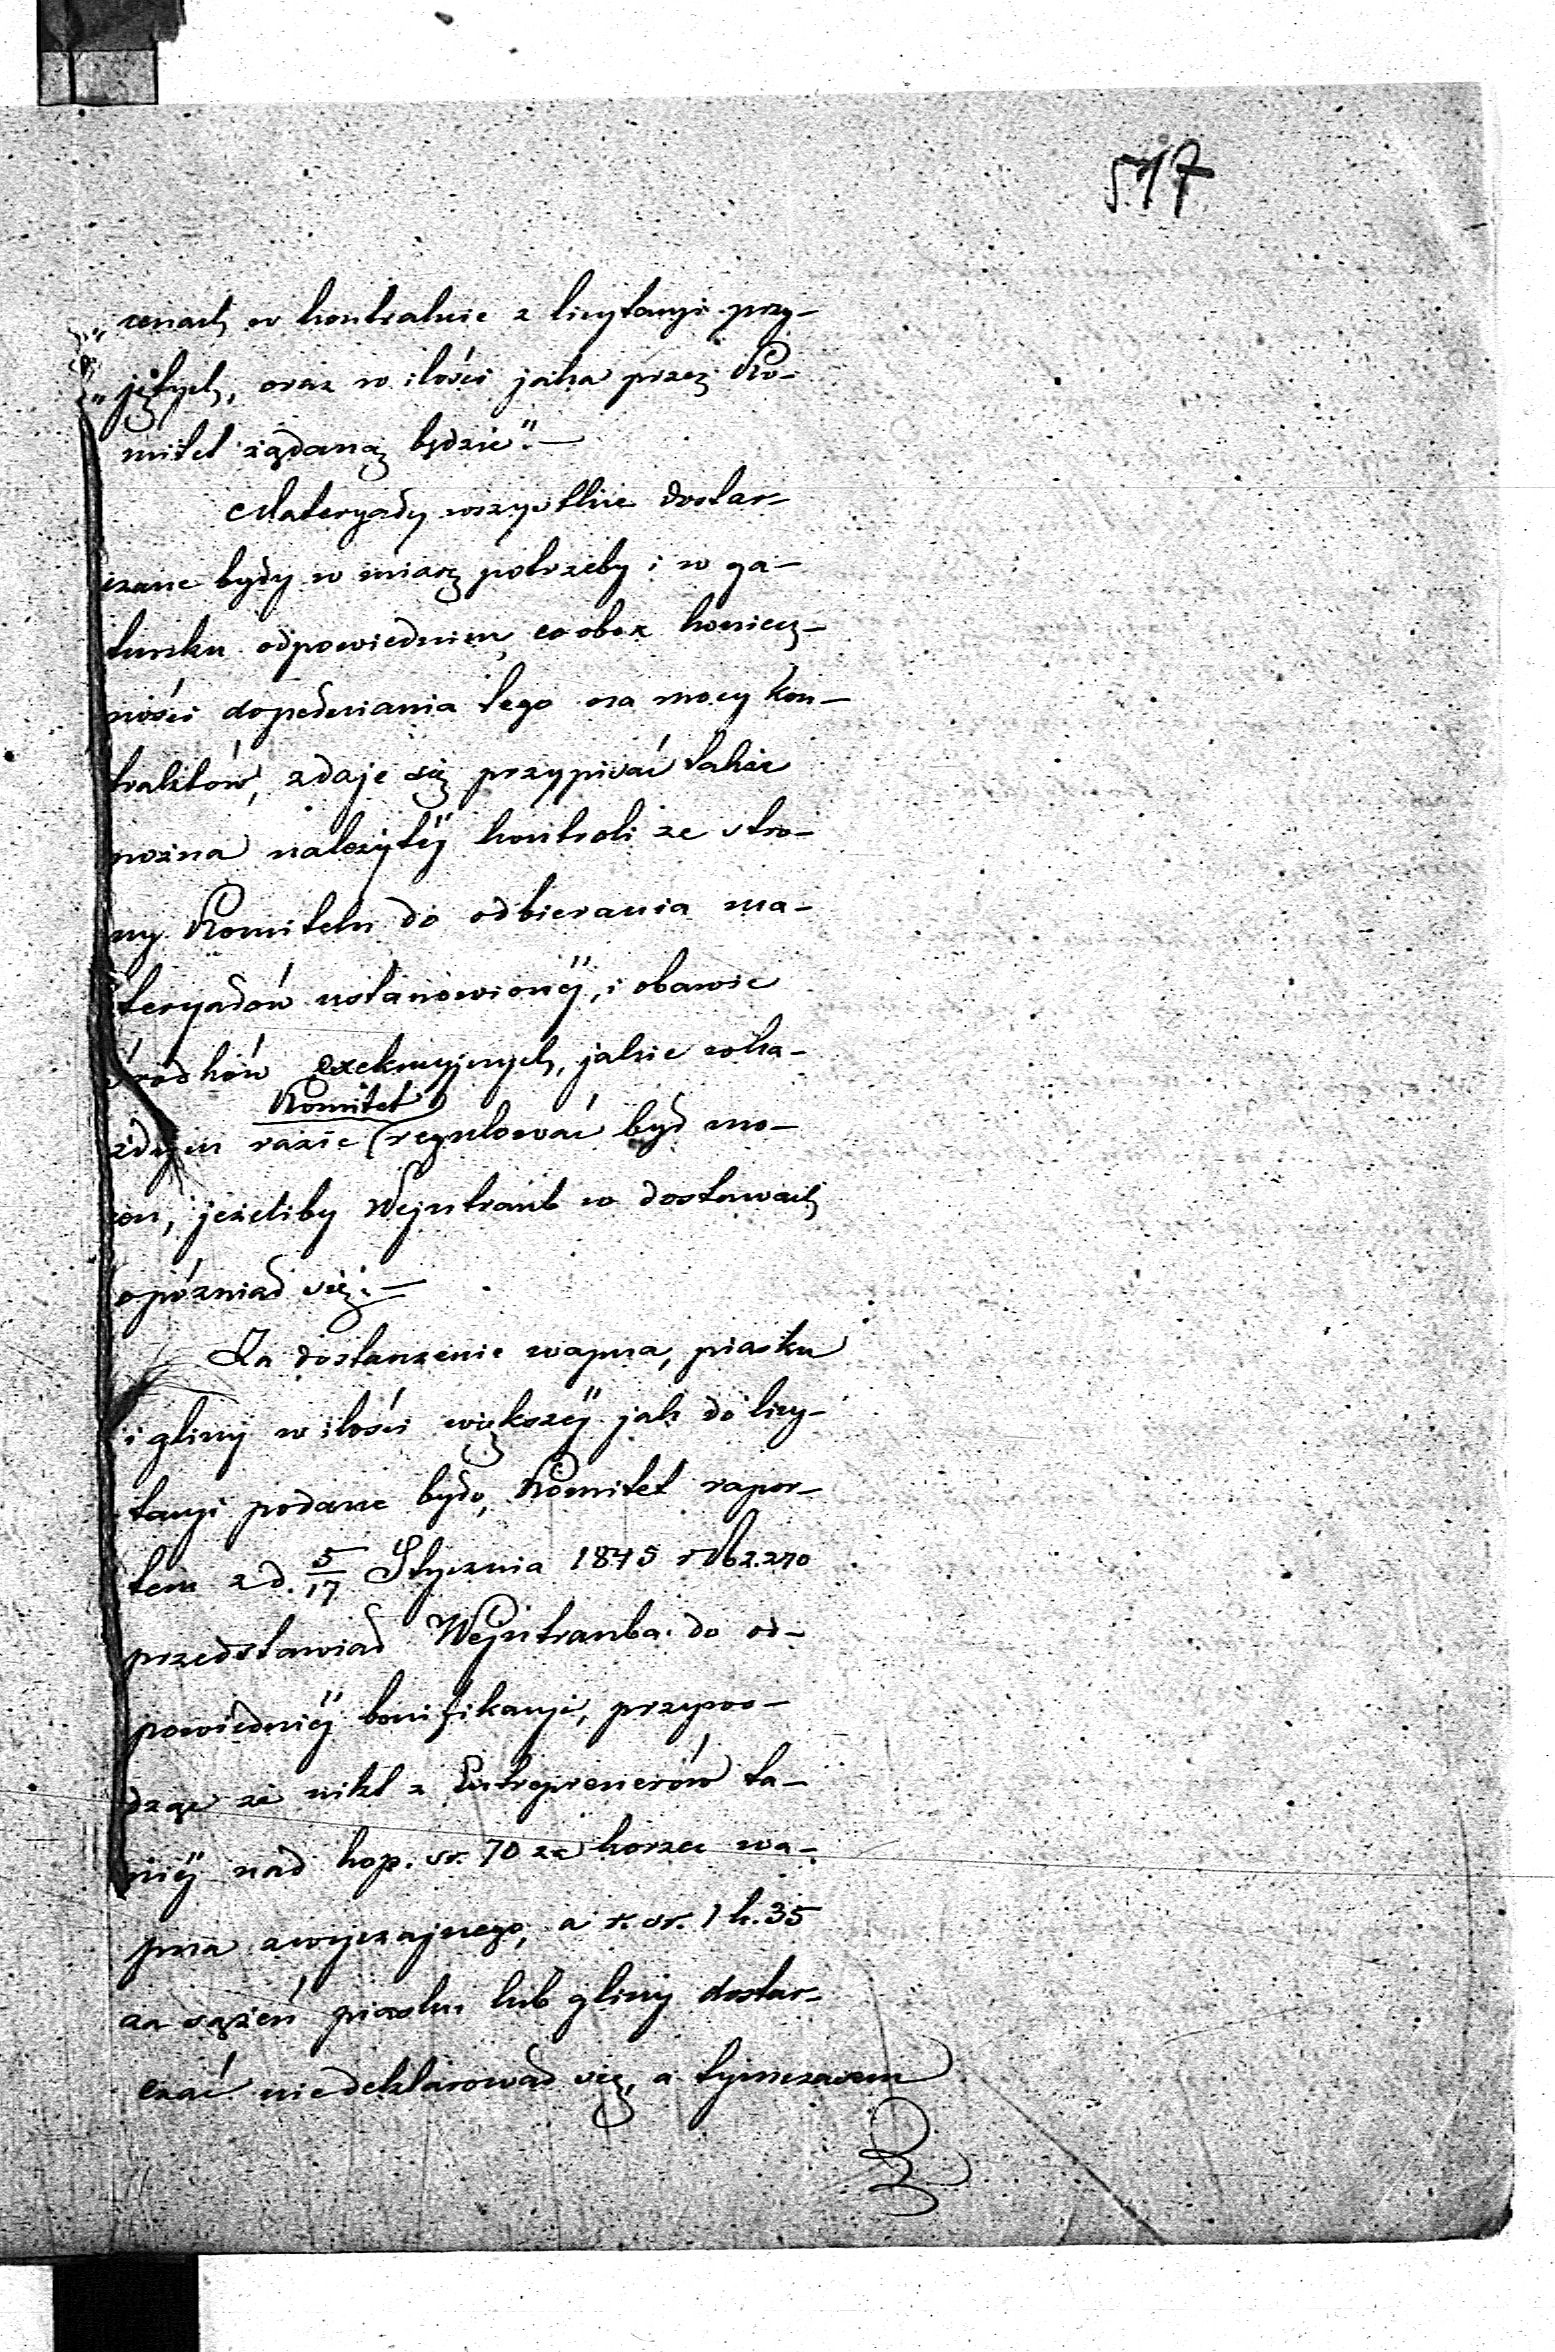 517
„cenach w kontrakcie z licytacyi przy-
„jętych, oraz w ilości jaka przez Ko-
mitet żądaną będzie".—
Materyały wszystkie dostar-
czane były w miarę potrzeby i w ga-
tunku odpowiednim, co obok koniecz-
ności dopełniania tego na mocy kon-
traktów, zdaje się przypisać także
można należytéj kontroli ze stro-
ny Komitetu do odbierania ma-
teryałów ustanowionéj, i obawie
środków exekucyjnych, jakie w ka-
Komitet
żdym razie regulować był mo-
cen, jeżeliby Wejntraub w dostawach
opóźniał się.—
Za dostarzenie wapna, piasku
i gliny w ilości większéj jak do licy-
tacyi podane było, Komitet rapor-
tem z d. 5/17 Stycznia 1845 No 2.270
przedstawiał Wejntrauba do od-
powiedniéj bonifikacyi, przywo-
dząc że nikt z Entreprenerów ta-
niéj nad kop. sr. 70 za korzec wa-
pna zwyczajnego, a r. sr. 1 k. 35
za sążeń piasku lub gliny dostar-
czać niedeklarował się, a tymczasem